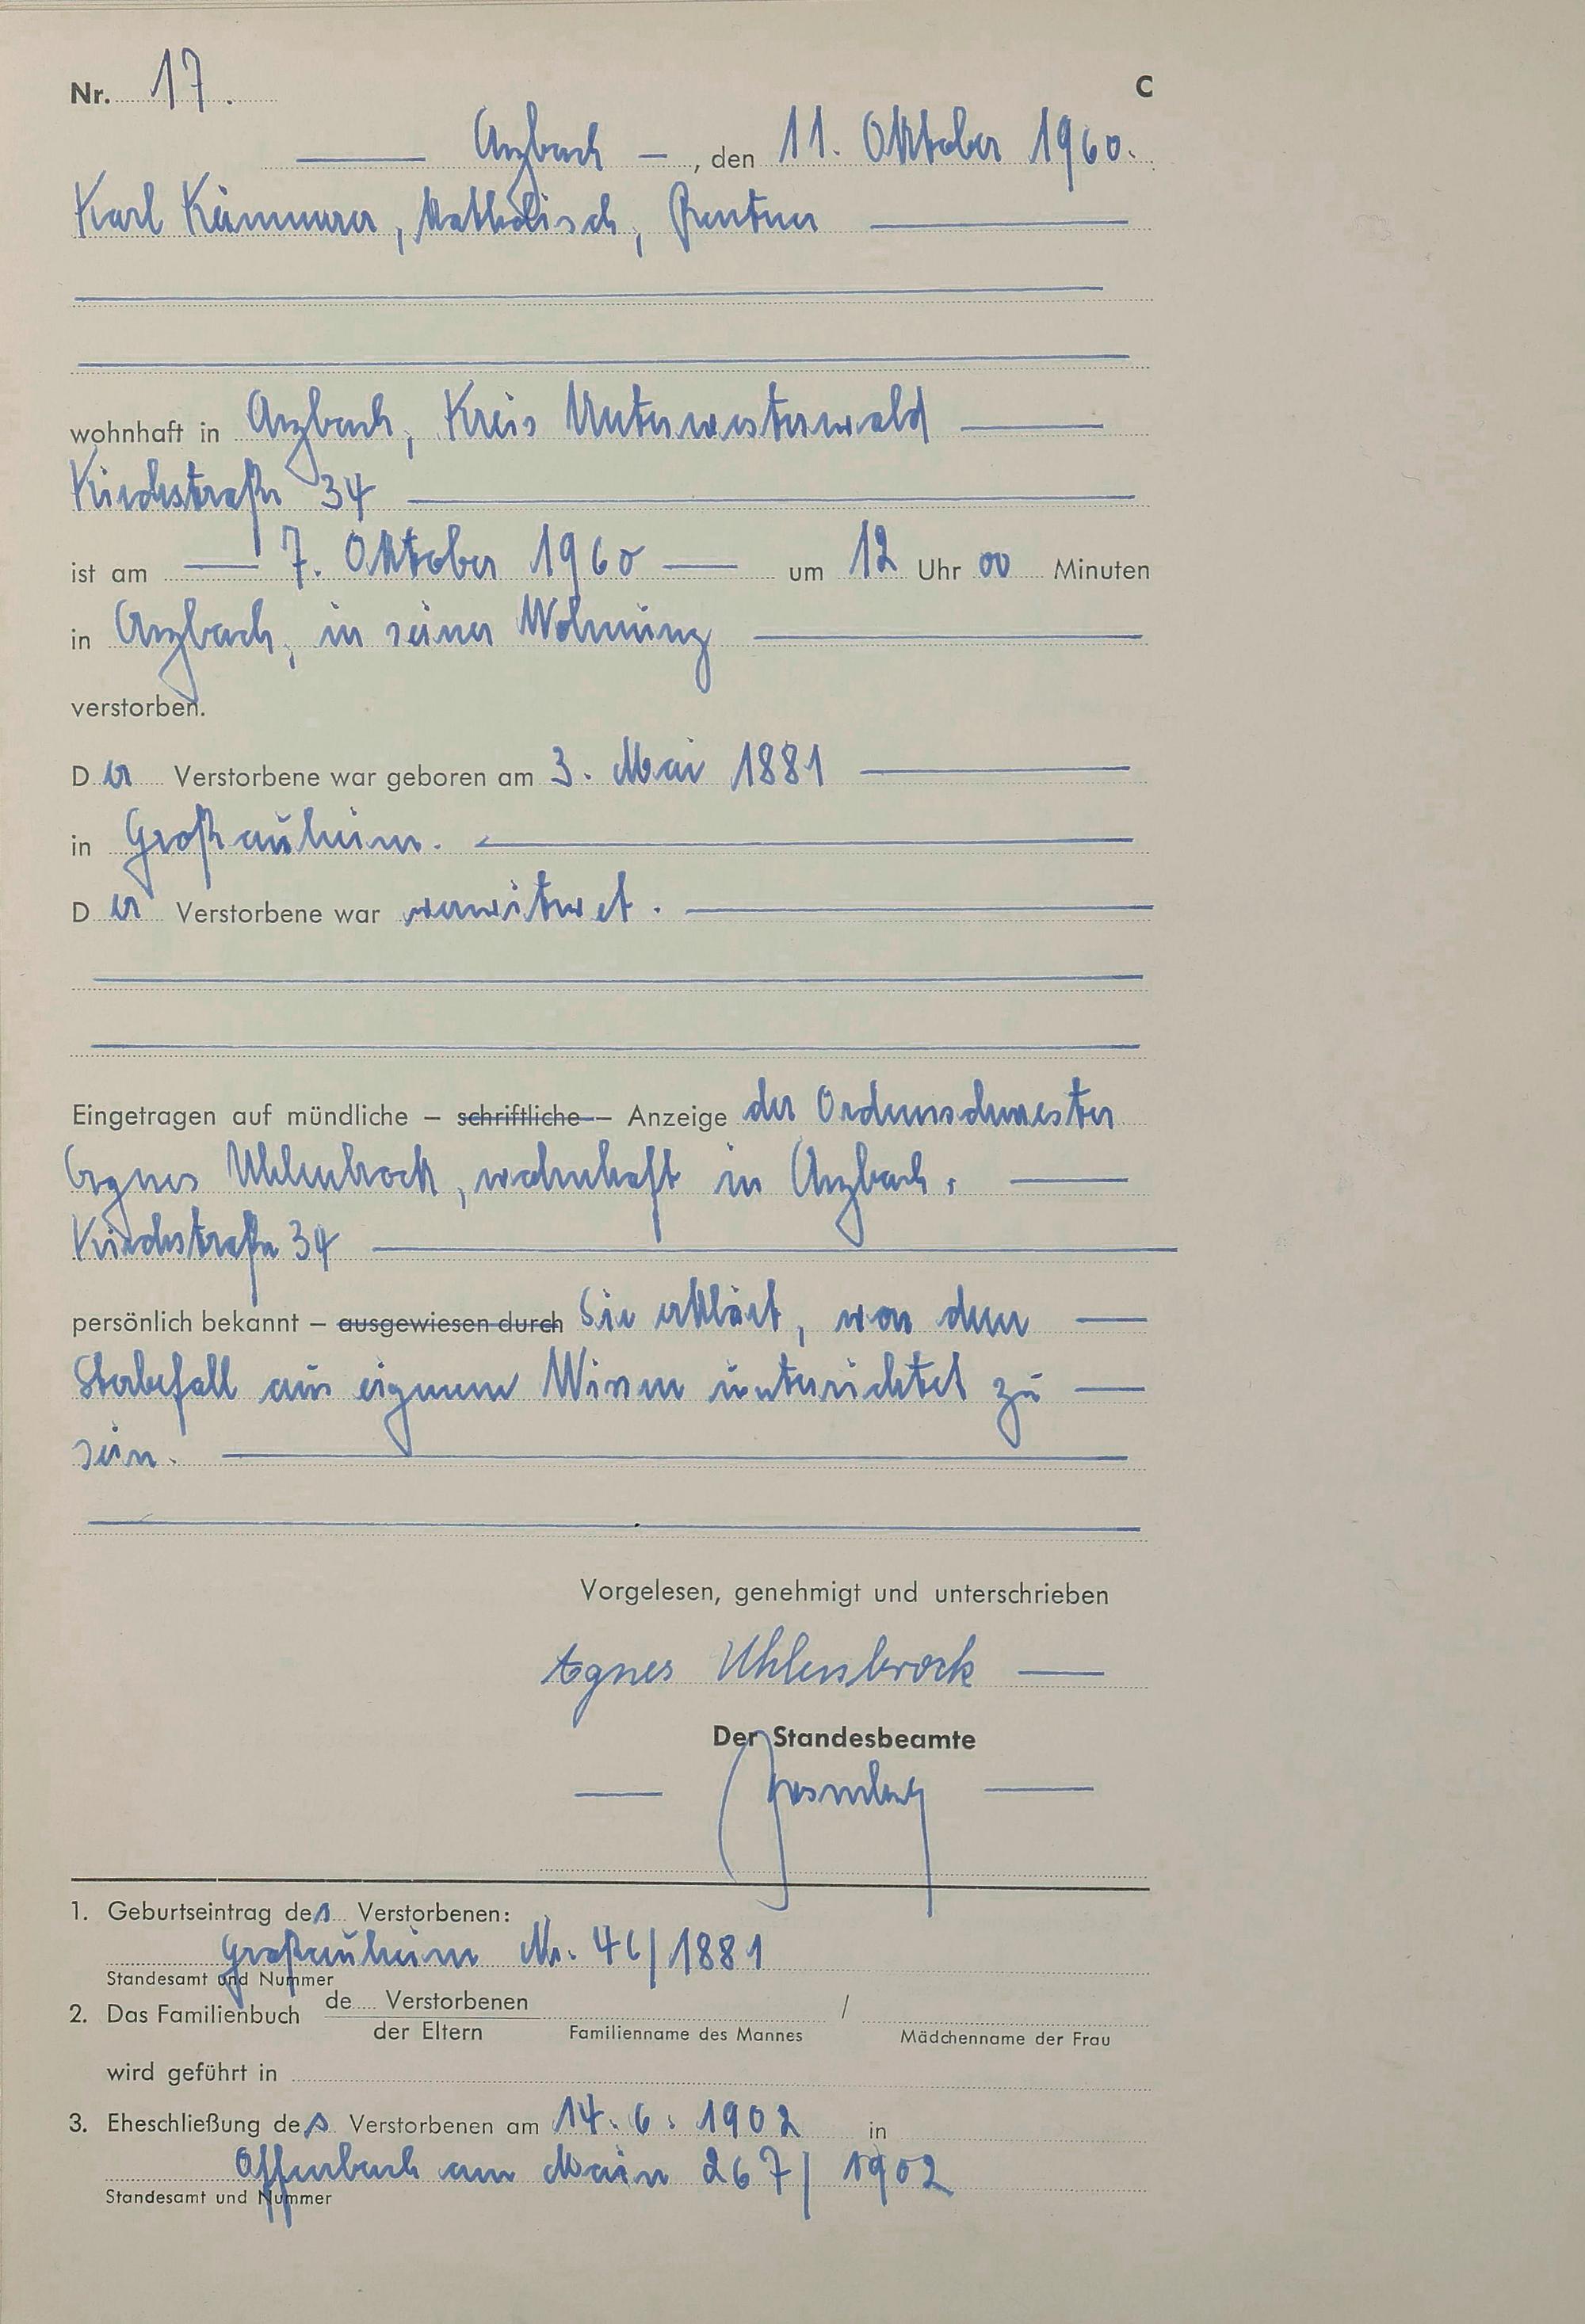 Nr. 17. C
Arzbach, den 11. Oktober 1960.
Karl Kämmerer, katholisch, Rentner
wohnhaft in Arzbach, Kreis Unterwesterwald
Kirchstraße 34
ist am 7. Oktober 1960 um 12 Uhr 00 Minuten
in Arzbach, in seiner Wohnung
verstorben.
Der Verstorbene war geboren am 3. Mai 1881
in Großauheim.
Der Verstorbene war verwitwet.
Eingetragen auf mündliche – schriftliche – Anzeige der Ordensschwester
Agnes Uhlenbrock, wohnhaft in Arzbach,
Kirchstraße 34
persönlich bekannt – ausgewiesen durch Sie erklärt, von dem
Sterbefall aus eigenem Wissen unterrichtet zu
sein.
Vorgelesen, genehmigt und unterschrieben
Agnes Uhlenbrock
Der Standesbeamte
1. Geburtseintrag des Verstorbenen:
Großauheim Nr. 46/1881
Standesamt und Nummer
2. Das Familienbuch de Verstorbenen /
der Eltern Familienname des Mannes Mädchenname der Frau
wird geführt in
3. Eheschließung des Verstorbenen am 14.6.1902 in
Offenbach am Main 267/1902
Standesamt und Nummer